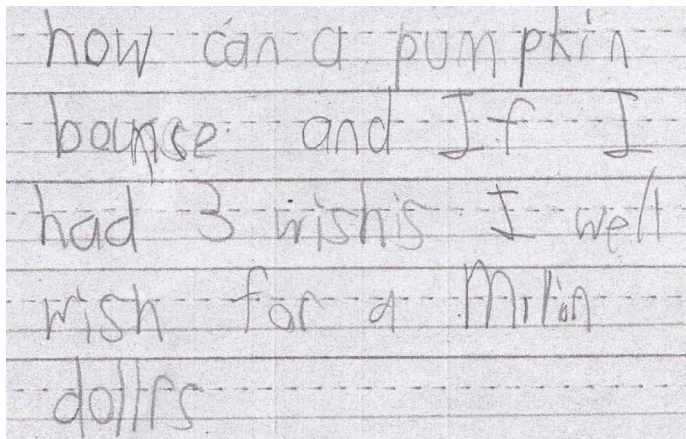 how can a pumpkin
bounse and If I
had 3 wishis I welt
wish for a Milin
dollrs